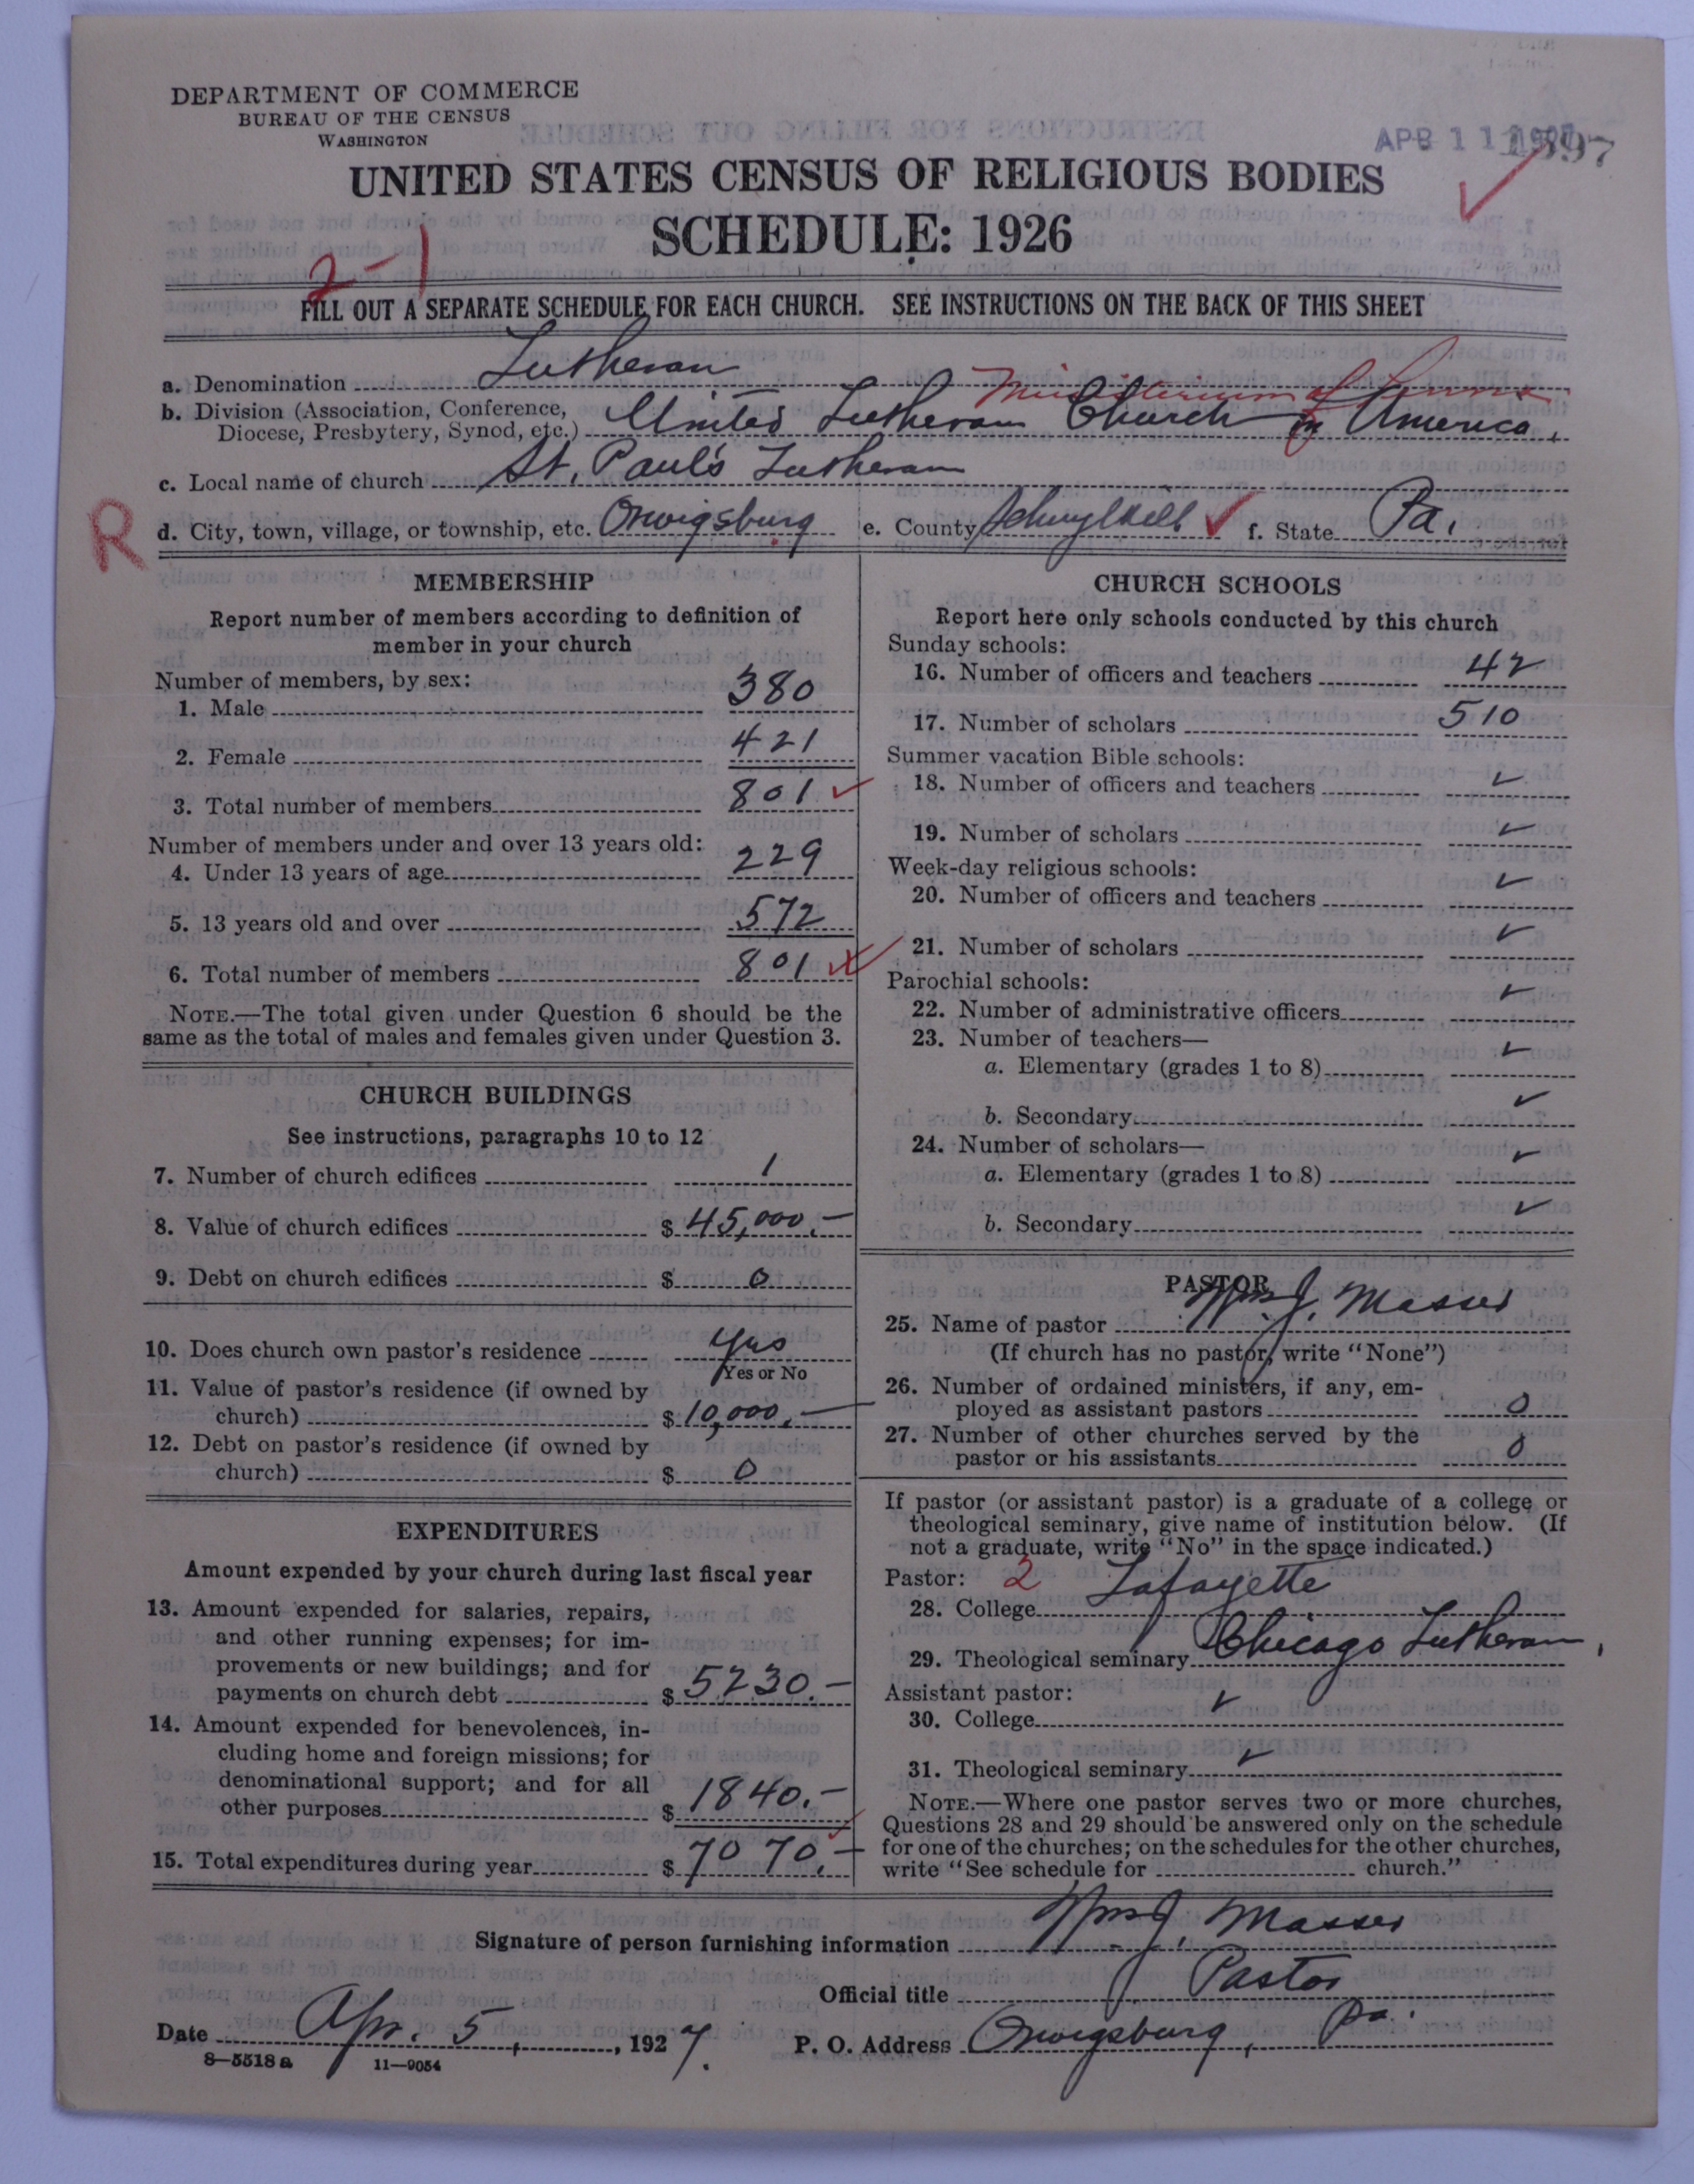 DEPARTMENT OF COMMERCE
BUREAU OF THE CENSUS
WASHINGTON
APR 11 1927
UNITED STATES CENSUS OF RELIGIOUS BODIES
SCHEDULE: 1926
2-1
FILL OUT A SEPARATE SCHEDULE FOR EACH CHURCH. SEE INSTRUCTIONS ON THE BACK OF THIS SHEET
a. Denomination Lutheran
Ministerium of Penna
b. Division (Association, Conference, Diocese, Presbytery, Synod, etc.) United Lutheran Church in America.
c. Local name of church St. Paul's Lutheran
R
d. City, town, village, or township, etc. Orwigsburg e. County Schuylkill ✓ f. State Pa.
MEMBERSHIP
Report number of members according to definition of
member in your church
Number of members, by sex:
1. Male 380
2. Female 421
3. Total number of members 801 ✓
Number of members under and over 13 years old:
4. Under 13 years of age 229
5. 13 years old and over 572
6. Total number of members 801 ✓
NOTE.—The total given under Question 6 should be the
same as the total of males and females given under Question 3.
CHURCH BUILDINGS
See instructions, paragraphs 10 to 12
7. Number of church edifices 1
8. Value of church edifices $ 45,000.—
9. Debt on church edifices $ 0
10. Does church own pastor's residence Yes
Yes or No
11. Value of pastor's residence (if owned by
church) $ 10,000.—
12. Debt on pastor's residence (if owned by
church) $ 0
EXPENDITURES
Amount expended by your church during last fiscal year
13. Amount expended for salaries, repairs,
and other running expenses; for im-
provements or new buildings; and for
payments on church debt $ 5230.—
14. Amount expended for benevolences, in-
cluding home and foreign missions; for
denominational support; and for all
other purposes $ 1840.—
15. Total expenditures during year $ 7070.—
CHURCH SCHOOLS
Report here only schools conducted by this church
Sunday schools:
16. Number of officers and teachers 42
17. Number of scholars 510
Summer vacation Bible schools:
18. Number of officers and teachers ✓
19. Number of scholars ✓
Week-day religious schools:
20. Number of officers and teachers ✓
21. Number of scholars ✓
Parochial schools:
22. Number of administrative officers ✓
23. Number of teachers—
a. Elementary (grades 1 to 8) ✓
b. Secondary ✓
24. Number of scholars—
a. Elementary (grades 1 to 8) ✓
b. Secondary ✓
PASTOR
25. Name of pastor Wm J. Masser
(If church has no pastor, write "None")
26. Number of ordained ministers, if any, em-
ployed as assistant pastors 0
27. Number of other churches served by the
pastor or his assistants 0
If pastor (or assistant pastor) is a graduate of a college or
theological seminary, give name of institution below. (If
not a graduate, write "No" in the space indicated.)
Pastor: 2
28. College Lafayette
29. Theological seminary Chicago Lutheran.
Assistant pastor:
30. College ✓
31. Theological seminary ✓
NOTE.—Where one pastor serves two or more churches,
Questions 28 and 29 should be answered only on the schedule
for one of the churches; on the schedules for the other churches,
write "See schedule for church."
Signature of person furnishing information Wm J. Masser
Official title Pastor
Date Apr. 5, 1927. P. O. Address Orwigsburg, Pa.
8—5518 a 11—9054